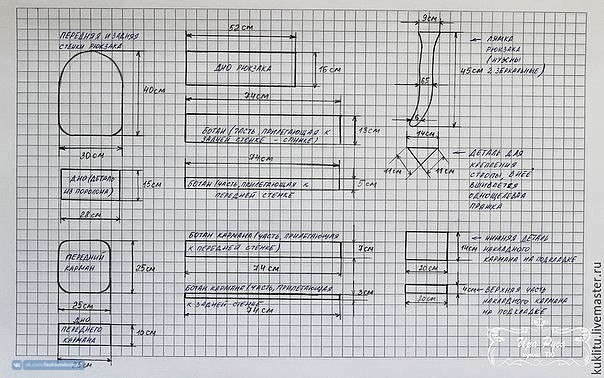 ПЕРЕДНЯЯ И ЗАДНЯЯ
СТЕНКИ РЮКЗАКА
40см
30 см
ДНО (ДЕТАЛЬ
ИЗ ПОРОЛОНА)
15см
28 см
ПЕРЕДНИЙ
КАРМАН
25см
25см
ДНО
ПЕРЕДНЕГО
КАРМАНА
10см
25см
52 см
ДНО РЮКЗАКА
16 см
74см
БОТАН (ЧАСТЬ, ПРИЛЕГАЮЩАЯ К
ЗАДНЕЙ СТЕНКЕ - СПИНКЕ)
13см
74см
БОТАН (ЧАСТЬ, ПРИЛЕГАЮЩАЯ К
ПЕРЕДНЕЙ СТЕНКЕ
5 см
БОТАН КАРМАНА (ЧАСТЬ, ПРИЛЕГАЮЩАЯ
К ПЕРЕДНЕЙ СТЕНКЕ)
7см
74см
БОТАН КАРМАНА (ЧАСТЬ, ПРИЛЕГАЮЩАЯ
К ЗАДНЕЙ СТЕНКЕ)
3см
74см
9см
ЛЯМКА
РЮКЗАКА
(НУЖНЫ
2 ЗЕРКАЛЬНЫЕ)
45см
65
6
14см
11см
11см
ДЕТАЛЬ ДЛЯ
КРЕПЛЕНИЯ
СТРОПЫ, В НЕЕ
ВШИВАЕТСЯ
ОДНОЩЕЛЕВАЯ
ПРЯЖКА
НИЖНЯЯ ДЕТАЛЬ
НАКЛАДНОГО
КАРМАНА НА ПОДКЛАДКЕ
14см
20см
4см
ВЕРХНЯЯ ЧАСТЬ
НАКЛАДНОГО КАРМАНА
НА ПОДКЛАДКЕ
20см
kuklitu.livemaster.ru